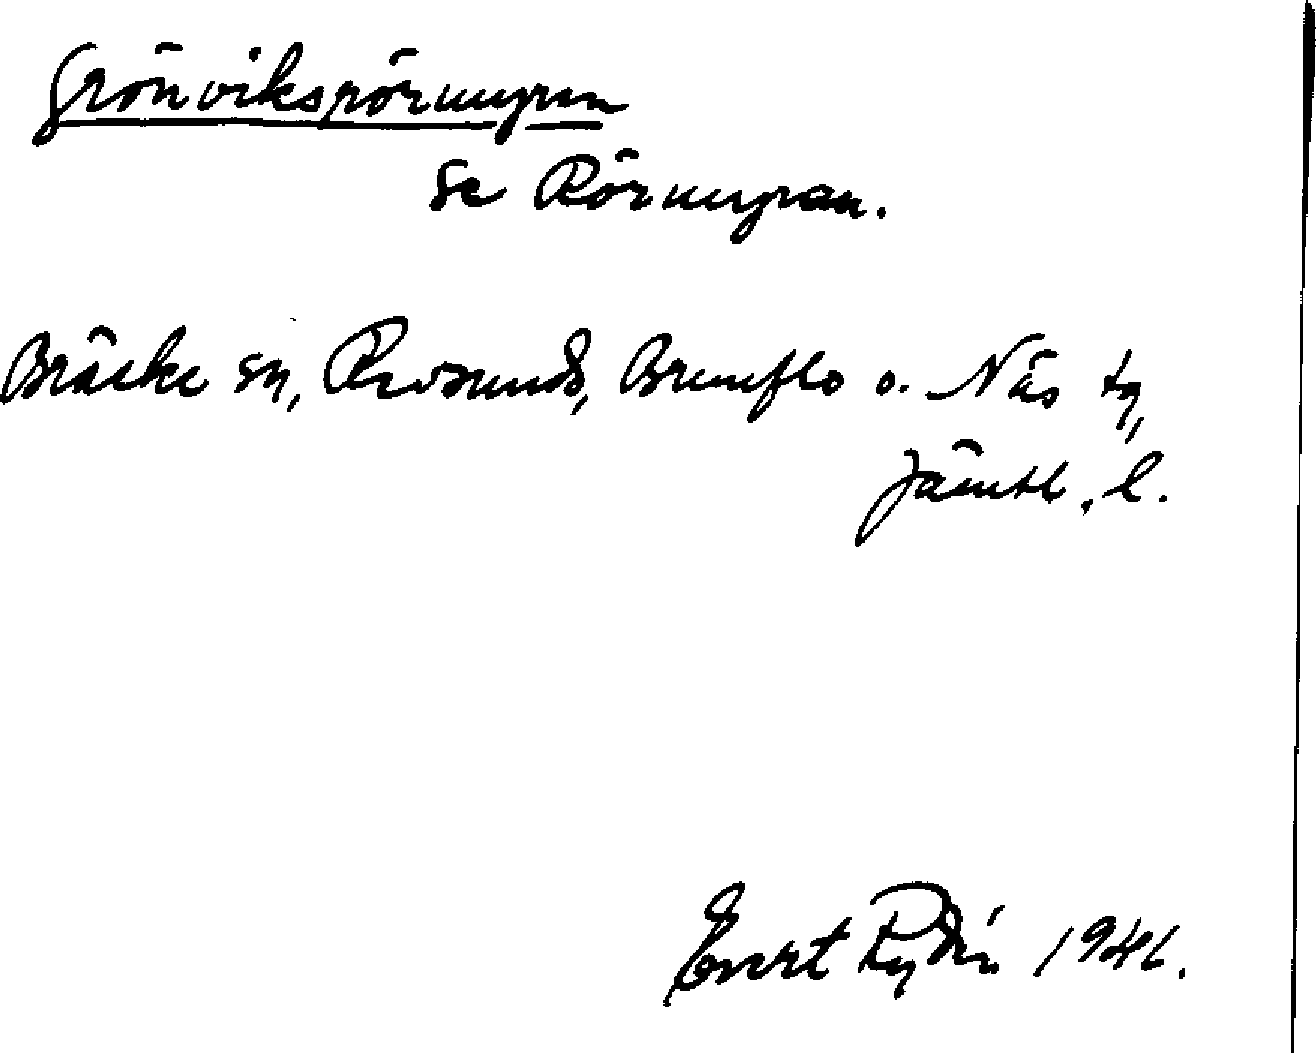 Grönviksrörmyran
se Rörmyran.
Bräcke sn, Revsunds, Brunflo o. Näs tg,
Jämtl. l.
Evert Rydin 1946.